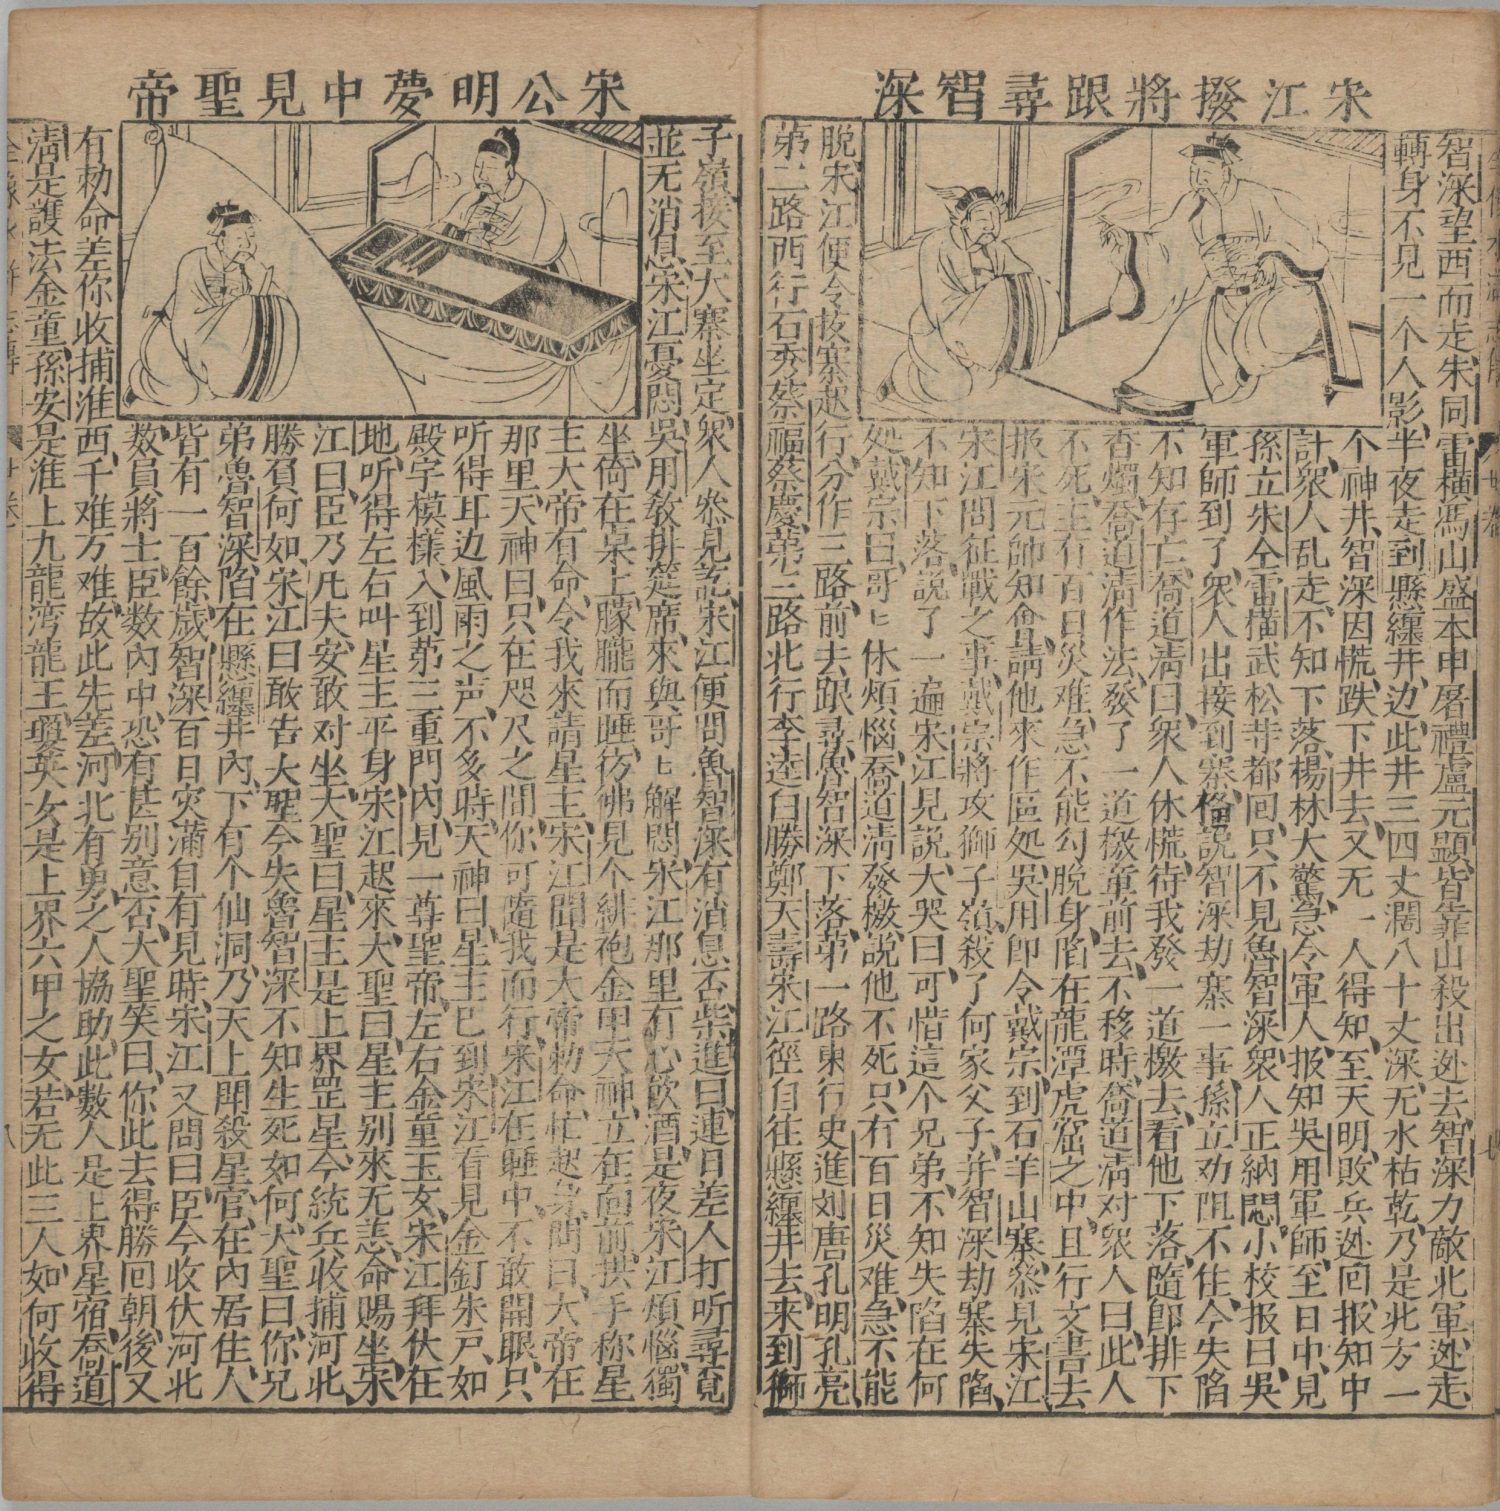 宋江撥將跟尋智深
智深望西而走朱同雷橫馮山盛本申屠禮盧元顯皆靠山殺出迯去智深力敵北軍迯走
轉身不見一个人影半夜走到懸纏井边此井三四丈濶八十丈深无水枯乾乃是北方一
个神井智深因慌跌下井去又无一人得知至天明敗兵迯回报知中
計衆人乱走不知下落楊林大驚急令軍人报知吳用軍師至日中見
孫立朱仝雷橫武松等都回只不見魯智深衆人正納悶小校报曰吳
軍師到了衆人出接到寨俻說智深劫寨一事孫立劝阻不住今失陷
不知存亡喬道清曰衆人休慌待我發一道檄去看他下落隨即排下
香燭喬道清作法發了一道檄童前去不移時喬道清对衆人曰此人
不死主有百日災难急不能勾脫身陷在龍潭虎窟之中且行文書去
报宋元帥知會請他來作區処吳用即令戴宗到石羊山寨叅見宋江
宋江問征戰之事戴宗將攻獅子嶺殺了何家父子并智深劫寨失陷
不知下落說了一遍宋江見說大哭曰可惜這个兄弟不知失陷在何
処戴宗曰哥〻休煩惱喬道清發檄說他不死只有百日災难急不能
脫宋江便令拔寨起行分作三路前去跟尋魯智深下落第一路東行史進刘唐孔明孔亮
第二路西行石秀蔡福蔡慶第三路北行李逵白勝鄭天壽宋江徑自往懸纏井去來到獅
宋公明夢中見聖帝
子嶺接至大寨坐定衆人叅見訖宋江便問魯智深有消息否柴進曰連日差人打听尋覓
並无消息宋江憂悶吳用敎排筵席來與哥〻解悶宋江那里有心飮酒是夜宋江煩惱獨
坐倚在桌上朦朧而睡彷彿見个緋袍金甲天神立在面前拱手称星
主大帝有命令我來請星主宋江聞是大帝勅命忙起身問曰大帝在
那里天神曰只在咫尺之間你可隨我而行宋江在睡中不敢開眼只
听得耳边風雨之声不多時天神曰星主已到宋江看見金釘朱戸如
殿宇模樣入到第三重門內見一尊聖帝左右金童玉女宋江拜伏在
地听得左右叫星主平身宋江起來大聖曰星主别來无恙命賜坐宋
江曰臣乃凡夫安敢对坐大聖曰星主是上界罡星今統兵收捕河北
勝負何如宋江曰敢告大聖今失魯智深不知生死如何大聖曰你兄
弟魯智深陷在懸纏井內下有个仙洞乃天上開殺星官在內居住人
皆有一百餘歲智深百日灾滿自有見時宋江又問曰臣今收伏河北
数員將士臣数內中恐有甚别意否大聖笑曰你此去得勝回朝後又
有勅命差你收捕淮西千难万难故此先差河北有勇之人協助此數人是上界星宿喬道
清是護法金童孫安是淮上九龍湾龍王瓊英女是上界六甲之女若无此三人如何收得